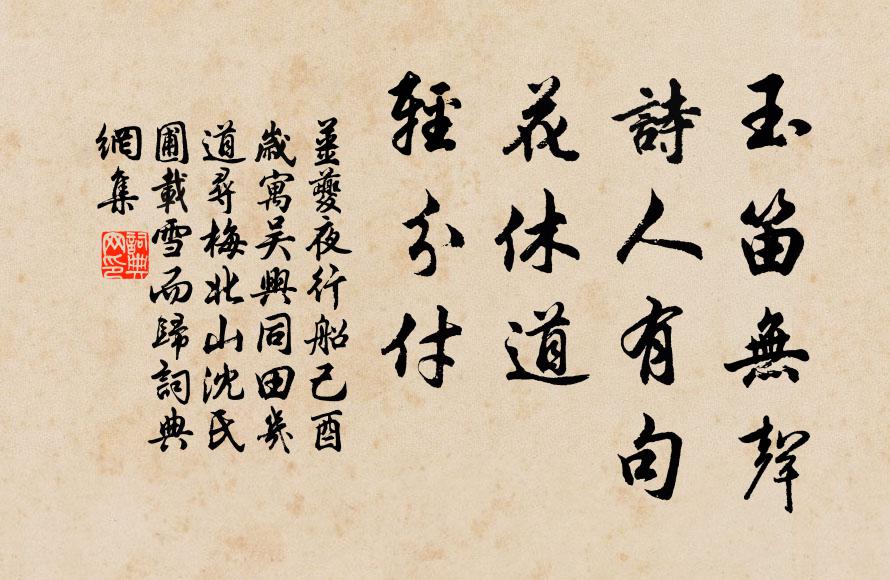 玉笛無聲
詩人有句
花休道
輕分付
姜夔夜行船己酉
歲寓吴興同田幾
道尋梅北山沈氏
圃載雪而歸詞典
網集
詞典
网印